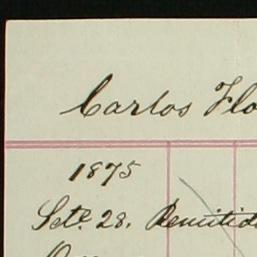 Carlos Flo
1875
Sete 28. Remitido